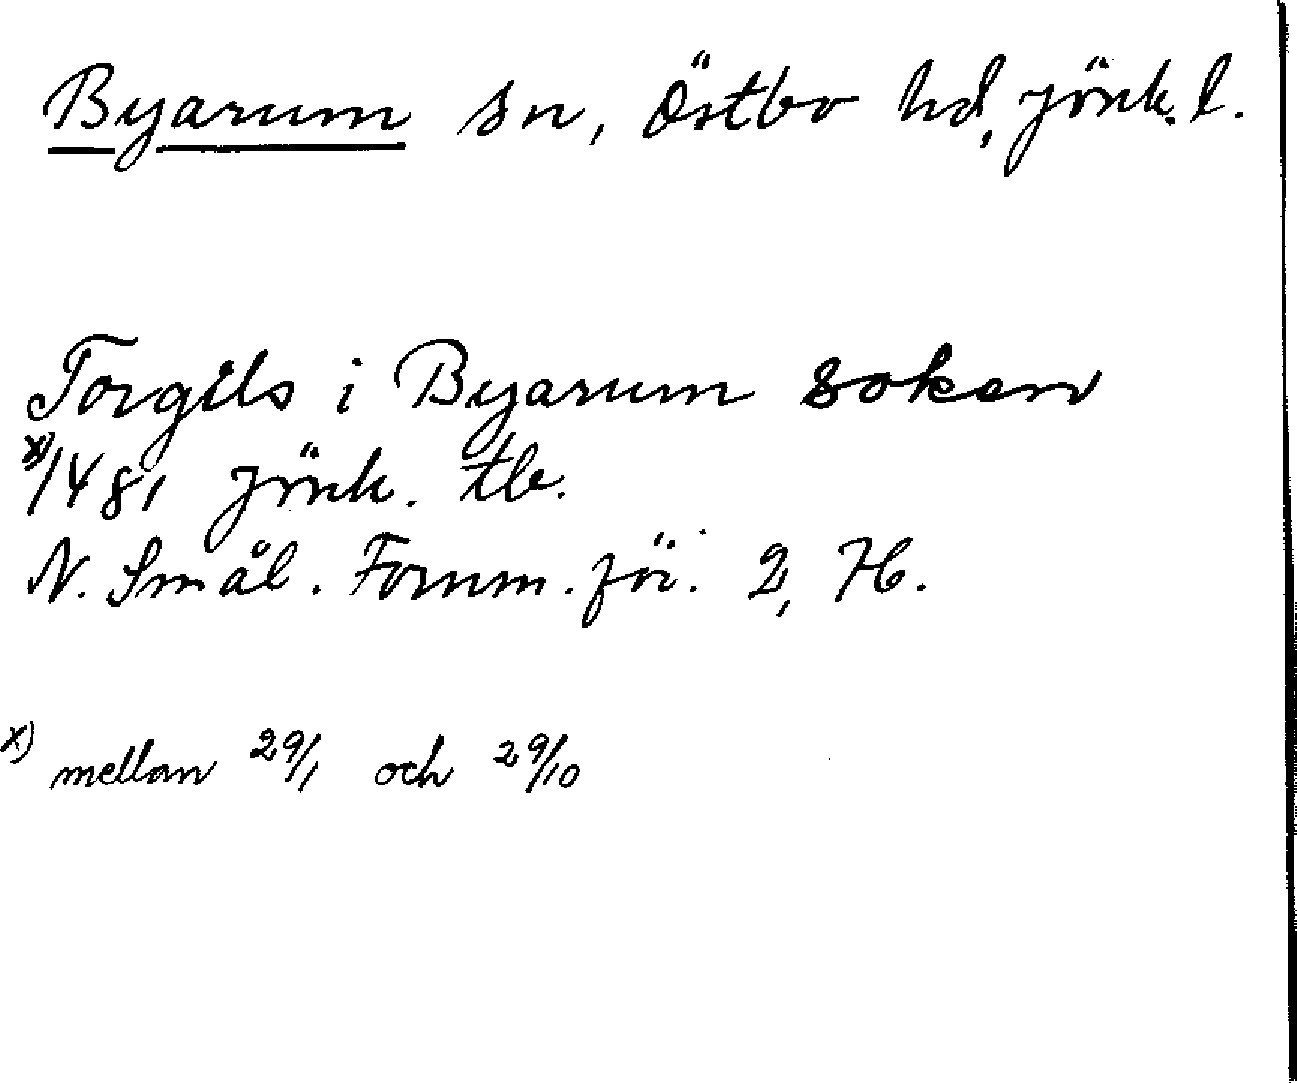 Byarum sn, Östbo hd, Jönk. l.
Torgils i Byarum soken
x) 1481 Jönk. tb.
N. Smål. Fornm. för. 2, 76.
x) mellan 29/1 och 29/10